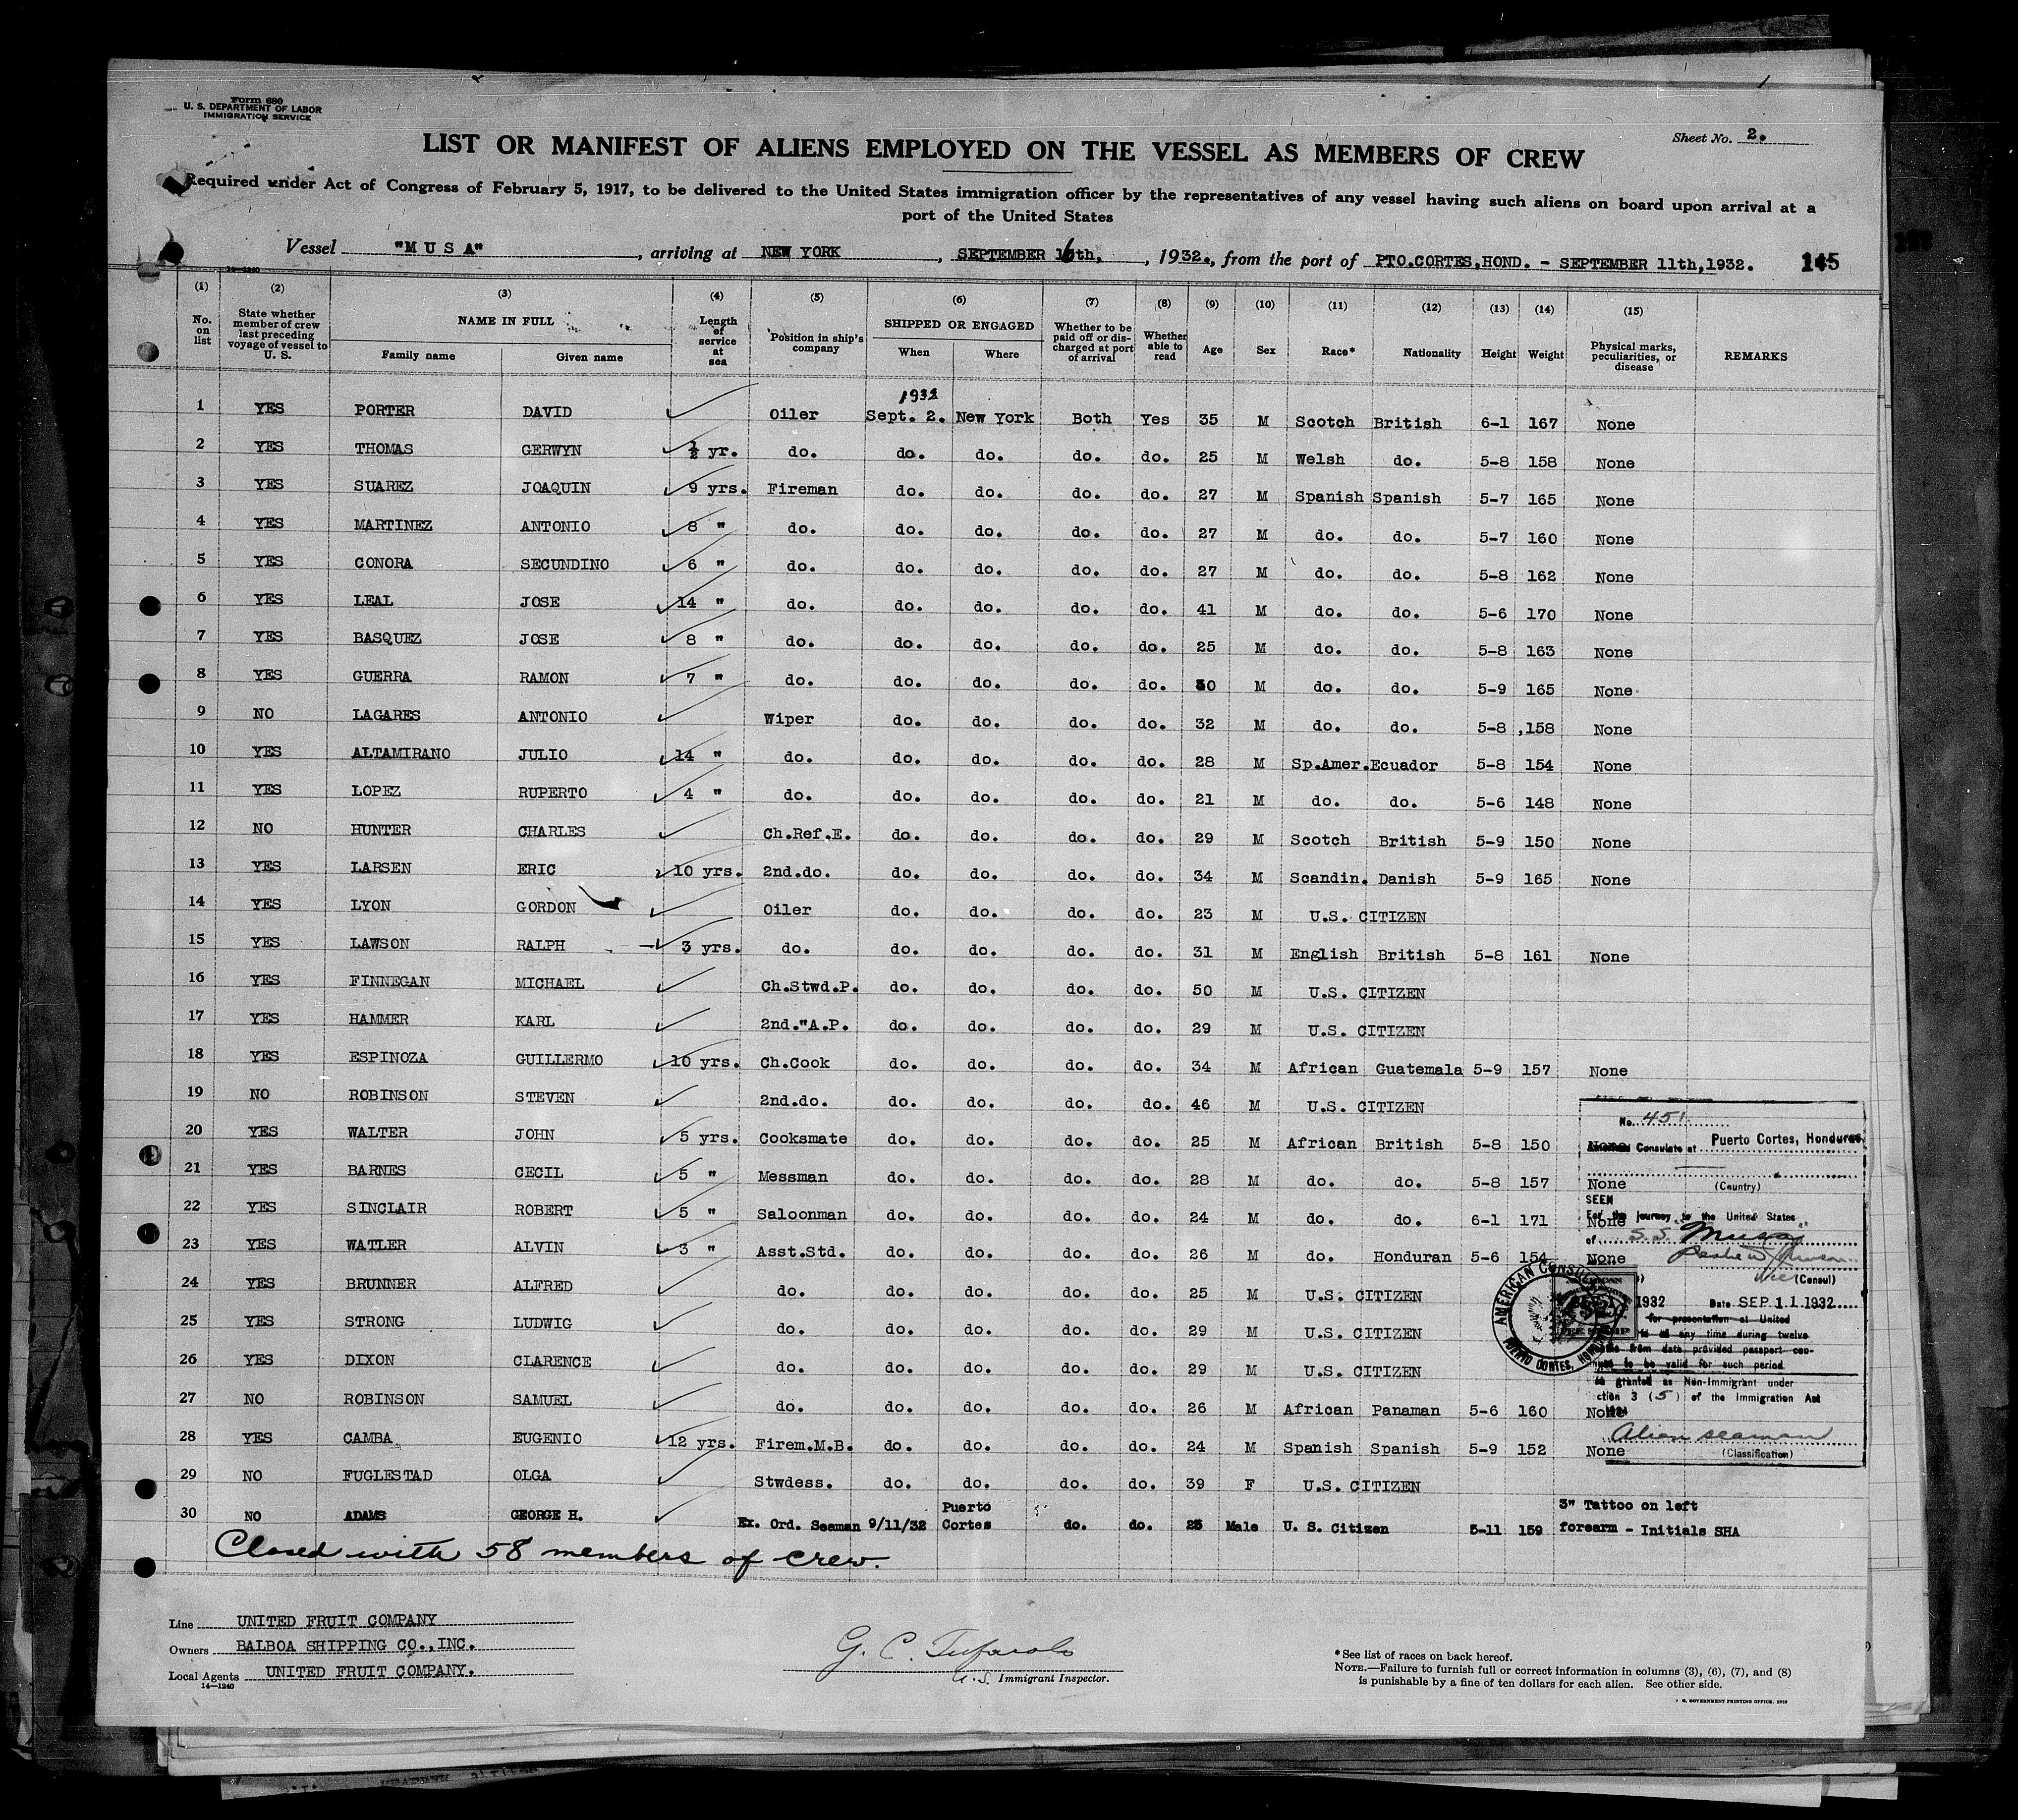 Form 680
U. S. DEPARTMENT OF LABOR
IMMIGRATION SERVICE
Sheet No. 2.
LIST OR MANIFEST OF ALIENS EMPLOYED ON THE VESSEL AS MEMBERS OF CREW
Required under Act of Congress of February 5, 1917, to be delivered to the United States immigration officer by the representatives of any vessel having such aliens on board upon arrival at a
port of the United States
Vessel "MUSA", arriving at NEW YORK, SEPTEMBER 16th, 1932., from the port of PTO.CORTES,HOND. - SEPTEMBER 11th,1932. 145
14—1240
(1) (2) (3) (4) (5) (6) (7) (8) (9) (10) (11) (12) (13) (14) (15)
No. on list State whether member of crew last preceding voyage of vessel to U. S. NAME IN FULL Family name Given name Length of service at sea Position in ship's company SHIPPED OR ENGAGED When Where Whether to be paid off or discharged at port of arrival Whether able to read Age Sex Race* Nationality Height Weight Physical marks, peculiarities, or disease REMARKS
1932
1 YES PORTER DAVID Oiler Sept. 2. New York Both Yes 35 M Scotch British 6-1 167 None
2 YES THOMAS GERWYN ½ yr. do. do. do. do. do. 25 M Welsh do. 5-8 158 None
3 YES SUAREZ JOAQUIN 9 yrs. Fireman do. do. do. do. 27 M Spanish Spanish 5-7 165 None
4 YES MARTINEZ ANTONIO 8 " do. do. do. do. do. 27 M do. do. 5-7 160 None
5 YES CONORA SECUNDINO 6 " do. do. do. do. do. 27 M do. do. 5-8 162 None
6 YES LEAL JOSE 14 " do. do. do. do. do. 41 M do. do. 5-6 170 None
7 YES BASQUEZ JOSE 8 " do. do. do. do. do. 25 M do. do. 5-8 163 None
8 YES GUERRA RAMON 7 " do. do. do. do. do. 30 M do. do. 5-9 165 None
9 NO LAGARES ANTONIO Wiper do. do. do. do. 32 M do. do. 5-8 158 None
10 YES ALTAMIRANO JULIO 14 " do. do. do. do. do. 28 M Sp.Amer. Ecuador 5-8 154 None
11 YES LOPEZ RUPERTO 4 " do. do. do. do. do. 21 M do. do. 5-6 148 None
12 NO HUNTER CHARLES Ch.Ref.E. do. do. do. do. 29 M Scotch British 5-9 150 None
13 YES LARSEN ERIC 10 yrs. 2nd.do. do. do. do. do. 34 M Scandin. Danish 5-9 165 None
14 YES LYON GORDON Oiler do. do. do. do. 23 M U.S. CITIZEN
15 YES LAWSON RALPH 3 yrs. do. do. do. do. do. 31 M English British 5-8 161 None
16 YES FINNEGAN MICHAEL Ch.Stwd.P. do. do. do. do. 50 M U.S. CITIZEN
17 YES HAMMER KARL 2nd."A.P. do. do. do. do. 29 M U.S. CITIZEN
18 YES ESPINOZA GUILLERMO 10 yrs. Ch.Cook do. do. do. do. 34 M African Guatemala 5-9 157 None
19 NO ROBINSON STEVEN 2nd.do. do. do. do. do. 46 M U.S. CITIZEN
20 YES WALTER JOHN 5 yrs. Cooksmate do. do. do. do. 25 M African British 5-8 150 None
21 YES BARNES CECIL 5 " Messman do. do. do. do. 28 M do. do. 5-8 157 None
22 YES SINCLAIR ROBERT 5 " Saloonman do. do. do. do. 24 M do. do. 6-1 171 None
23 YES WATLER ALVIN 3 " Asst.Std. do. do. do. do. 26 M do. Honduran 5-6 154 None
24 YES BRUNNER ALFRED do. do. do. do. do. 25 M U.S. CITIZEN
25 YES STRONG LUDWIG do. do. do. do. do. 29 M U.S. CITIZEN
26 YES DIXON CLARENCE do. do. do. do. do. 29 M U.S. CITIZEN
27 NO ROBINSON SAMUEL do. do. do. do. do. 26 M African Panaman 5-6 160 None
28 YES CAMBA EUGENIO 12 yrs. Firem.M.B. do. do. do. do. 24 M Spanish Spanish 5-9 152 None
29 NO FUGLESTAD OLGA Stwdess. do. do. do. do. 39 F U.S. CITIZEN
30 NO ADAMS GEORGE H. Ex. Ord. Seaman 9/11/32 Puerto Cortes do. do. 25 Male U. S. Citizen 5-11 159 3" Tattoo on left forearm - Initials SHA
Closed with 58 members of crew.
No. 451
American Consulate at Puerto Cortes, Honduras
(Country)
SEEN
For the journey to the United States
of S.S. "Musa"
Vice (Consul)
1932 Date SEP 11 1932
for presentation at United
at any time during twelve
from date, provided passport con-
to be valid for such period
granted as Non-Immigrant under
ction 3 (5) of the Immigration Act
Alien seaman
(Classification)
AMERICAN CONSULATE
PUERTO CORTES, HONDURAS
Line UNITED FRUIT COMPANY
Owners BALBOA SHIPPING CO.,INC.
Local Agents UNITED FRUIT COMPANY.
14—1240
G. C. Tufarolo
U. S. Immigrant Inspector.
*See list of races on back hereof.
NOTE.—Failure to furnish full or correct information in columns (3), (6), (7), and (8)
is punishable by a fine of ten dollars for each alien. See other side.
GOVERNMENT PRINTING OFFICE